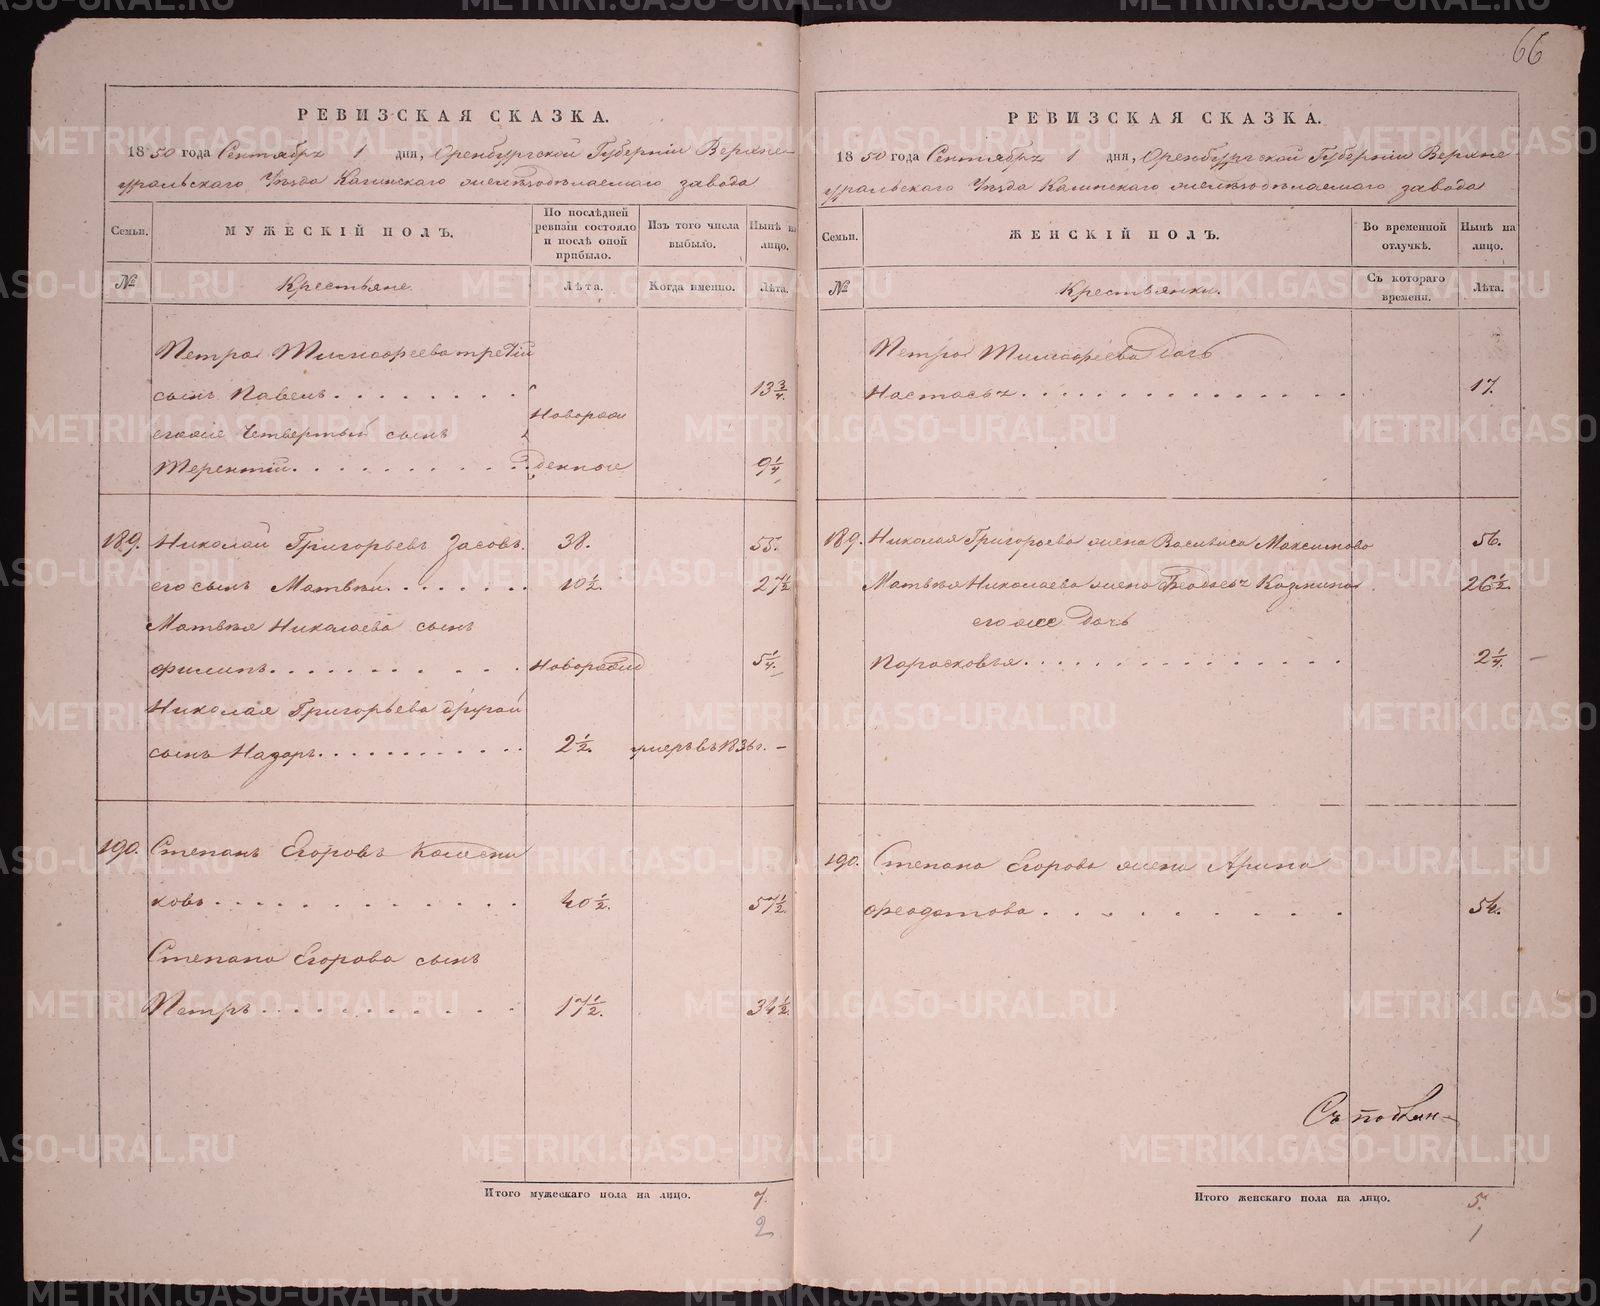 66
РЕВИЗСКАЯ СКАЗКА.
1850 года Сентября 1 дня, Оренбургской Губерніи Верхне-
уральскаго Уѣзда Кагинскаго железоделаемаго завода
Семьи.
МУЖЕСКІЙ ПОЛЪ.
По послѣдней ревизіи состояло и послѣ оной прибыло.
Изъ того числа выбыло.
Нынѣ на лицо.
№
Крестьяне.
Лѣта.
Когда именно.
Лѣта.
Петра Тимофеева третій
сынъ Павелъ 13 3/4.
Новорож
егоже четвертый сынъ
Терентій денные 9 1/4
189. Николай Григорьевъ Засовъ. 38. 55.
его сынъ Матвѣй 10 1/2. 27 1/2
Матвѣя Николаева сынъ
Филипъ Новорожд 5 1/4.
Николая Григорьева другой
сынъ Назаръ 2 1/2. умеръ въ 1836 г. -
190. Степанъ Егоровъ
ковъ 40 1/2. 57 1/2.
Степана Егорова сынъ
Петръ 17 1/2. 34 1/2.
Итого мужескаго пола на лицо. 7.
2
РЕВИЗСКАЯ СКАЗКА.
1850 года Сентября 1 дня, Оренбургской Губерніи Верхне-
уральскаго Уѣзда Кагинскаго железоделаемаго завода
Семьи.
ЖЕНСКІЙ ПОЛЪ.
Во временной отлучкѣ.
Нынѣ на лицо.
№
Крестьянки.
Съ котораго времени.
Лѣта.
Петра Тимофеева дочь
Настасья 17.
189. Николая Григорьева жена Василиса Максимова 56.
Матвѣя Николаева жена Федосья Козмина 26 1/2.
егоже дочь
Парасковья 2 1/4.
190. Степана Егорова жена Арина
Феодотова 54.
Съ подлин-
Итого женскаго пола на лицо. 5.
1
METRIKI.GASO-URAL.RU